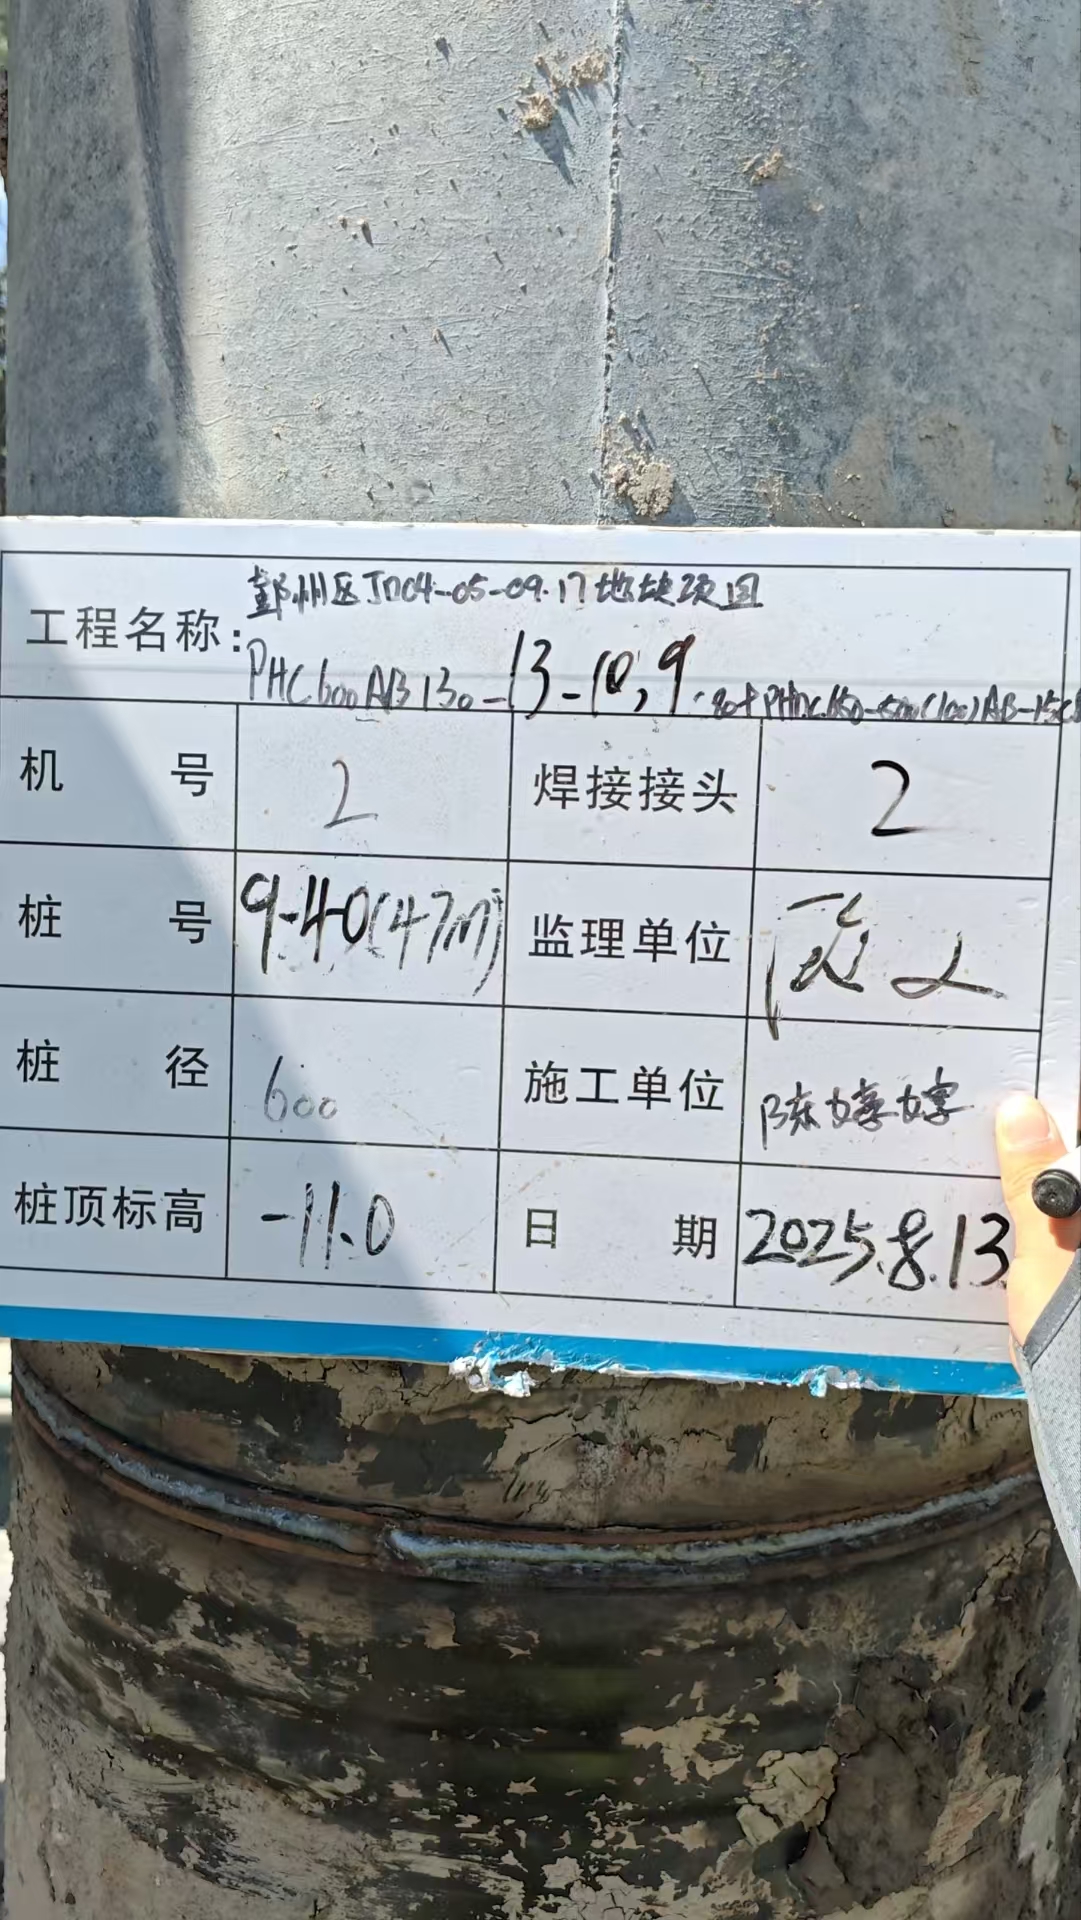 鄞州区JD04-05-09.17地块项目
工程名称:
PHC600AB130-13-10,9
机号 2 焊接接头 2
桩号 9-40(47m) 监理单位
桩径 600 施工单位 陈婷婷
桩顶标高 -11.0 日期 2025.8.13